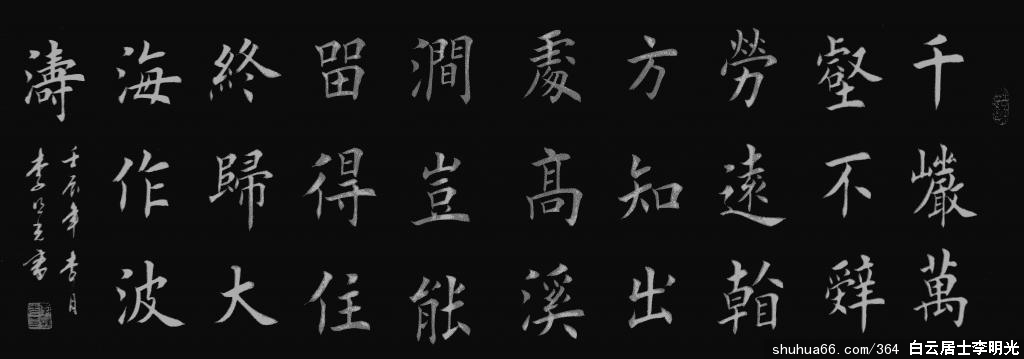 千巖萬
壑不辭
勞遠看
方知出
處髙溪
澗豈能
留得住
終歸大
海作波
濤
壬辰年春月
李明光書
shuhua66.com/364 白云居士李明光